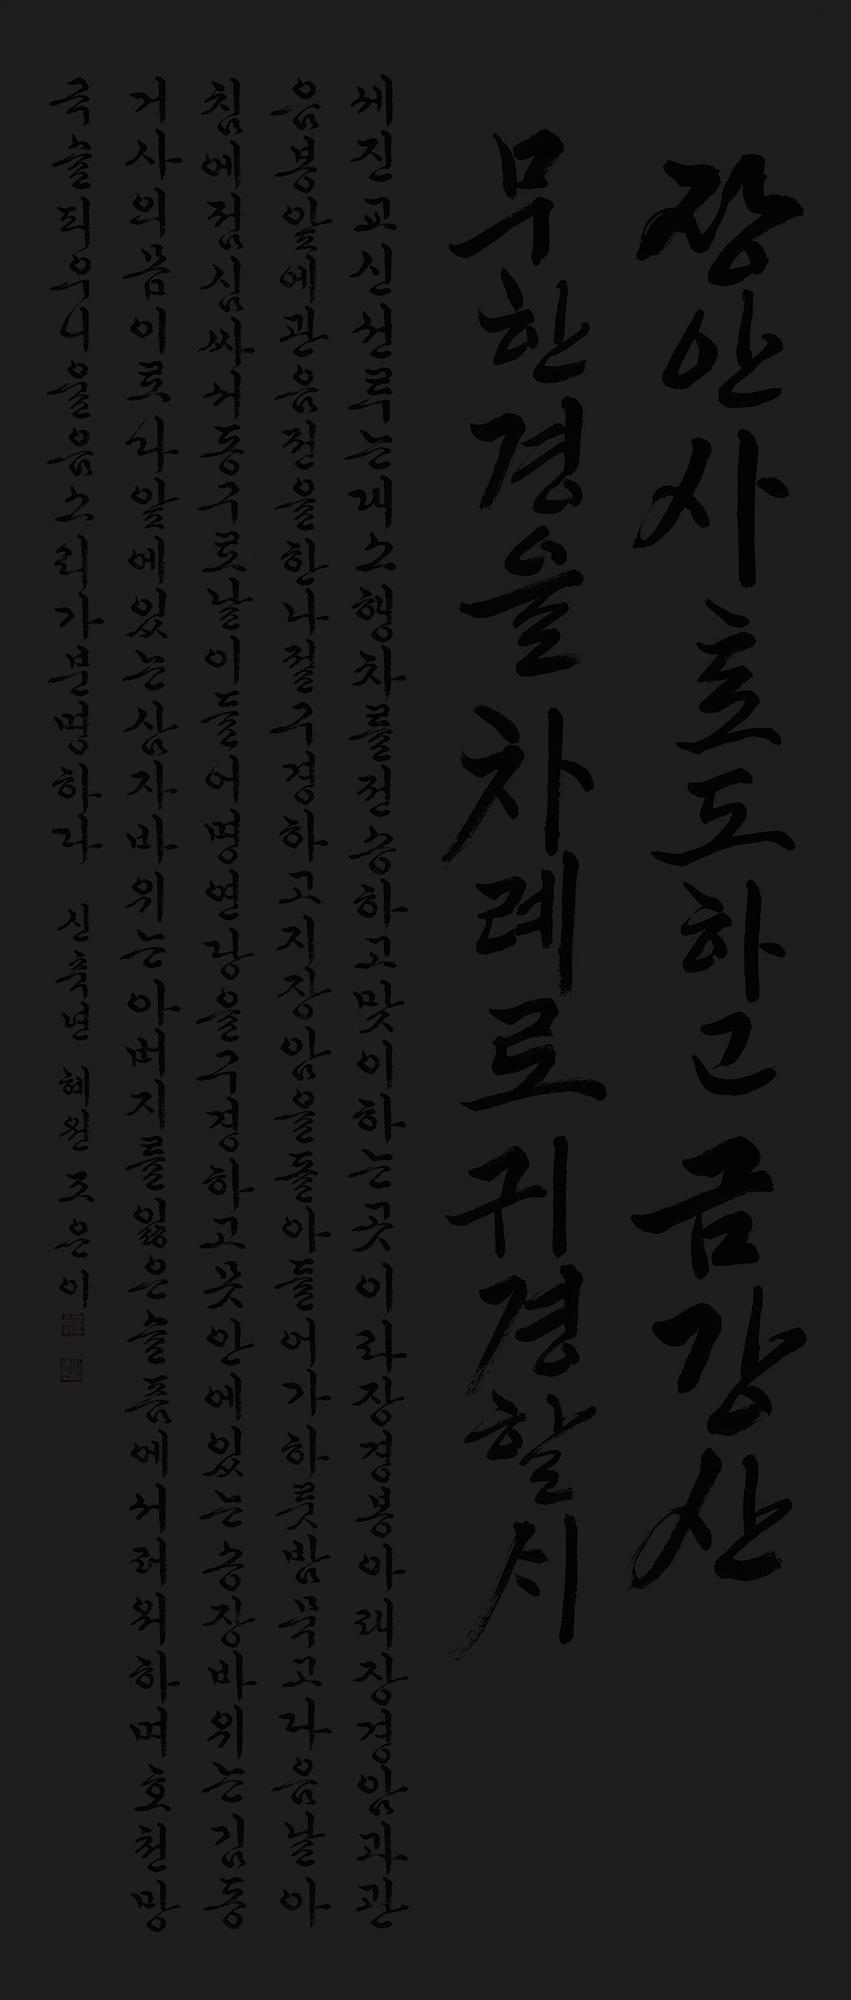 장안사 호도하고 금강산
무한경을 차례로 귀경할시
세진교신선루는대소행차를전송하고맞이하는곳이라장경봉아래장경암과관
음봉앞에관음전을한나절구경하고지장암을돌아들어가하룻밤묵고다음날아
침에점심싸서동구로날이들어명연담을구경하고못안에있는송장바위는김동
거사의몸이로다앞에있는삼자바위는아버지를잃은슬픔에서러워하며호천망
극슬피우니울음소리가분명하다 신축년 혜원 조은이